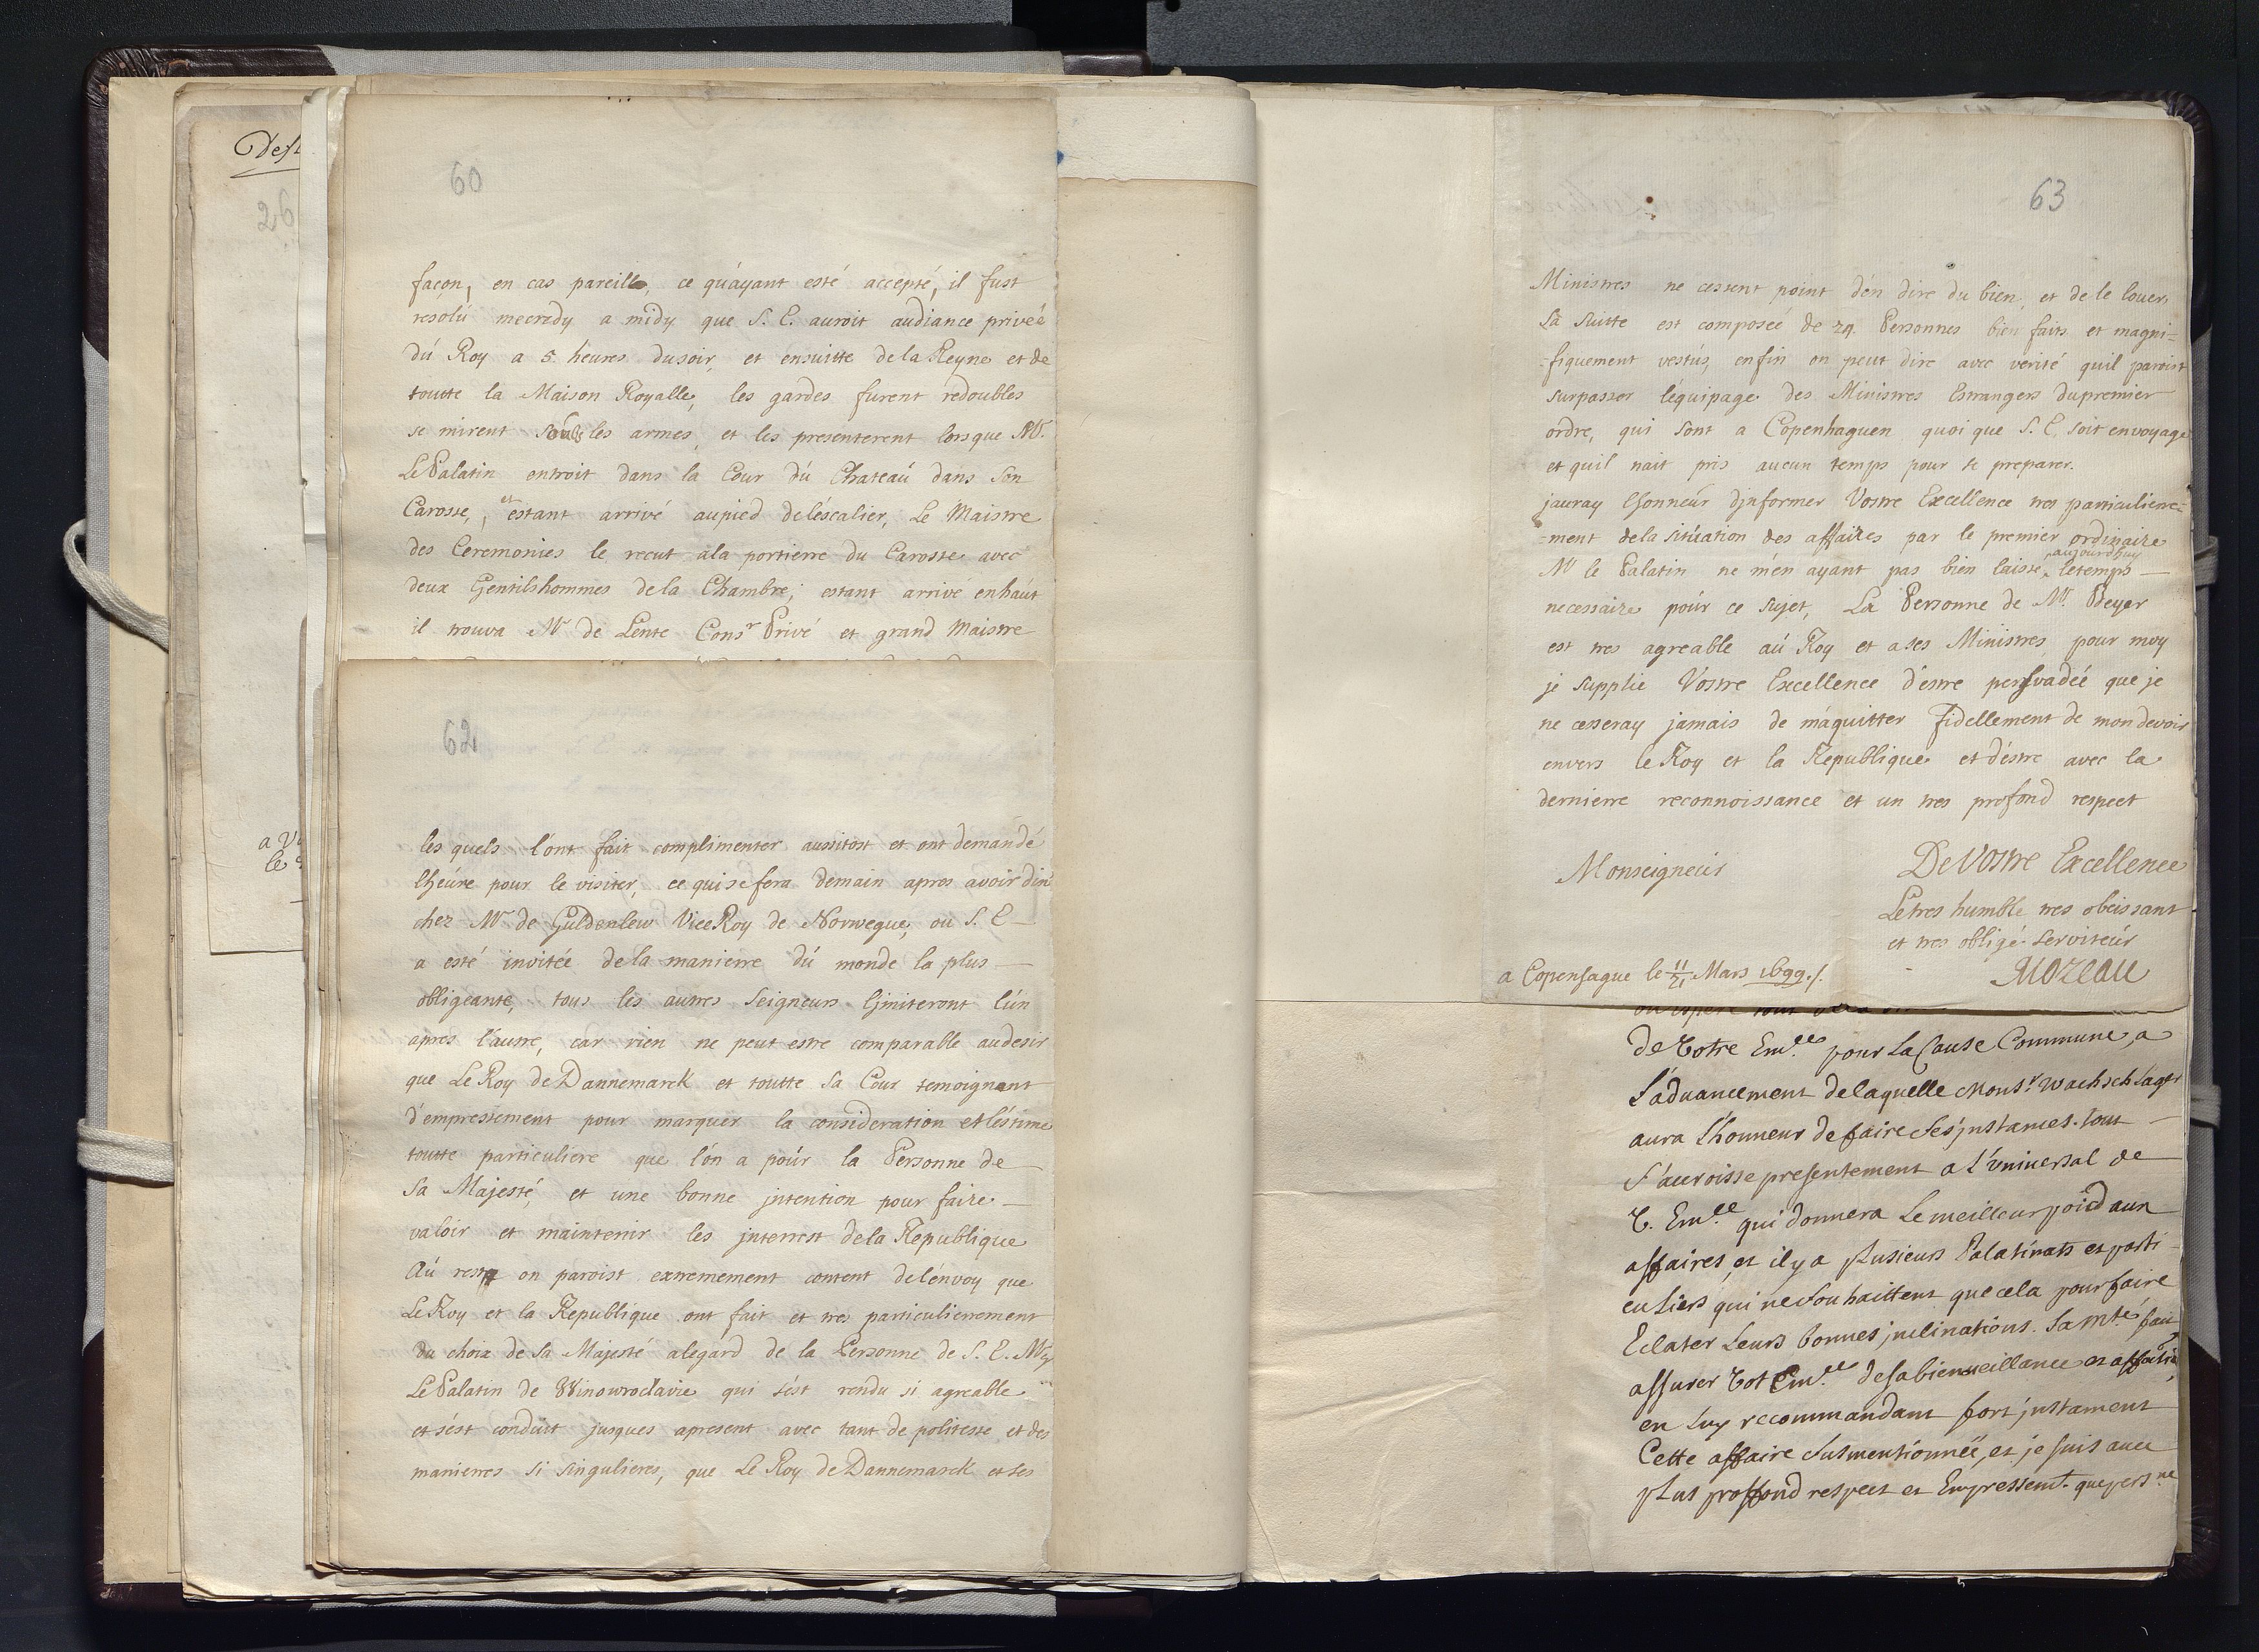 60
façon, en cas pareille, ce qu'ayant esté accepté, il fust
resolú mecredy a midy que S. E. auroit audiance privée
dú Roy a 5 heures dusoir, et ensuitte dela Reyne et de
toutte la Maison Royalle, les gardes furent redoubles
se mirent sous les armes, et les presenterent lorsque Mr.
Le Palatin entroit dans la Cour dú Chateaú dans son
Carosse, et estant arrivé aupied deléscalier, Le Maistre
des Ceremonies le recut ala portierre du Carosse avec
deux Gentilshommes dela Chambre; estant arrivé enhaút
il trouva Mr de Lente Consr Privé et grand Maistre
62
les quels lónt fait complimenter aussitost et ont demandé
lheúre pour le visiter, ce quisefera demain apres avoir diné
chez Mr de Guldenlew ViceRoy de Norwegue, ou S. E
a esté invitée dela manierre dú monde la plus
obligeante, tous les autres Seigneurs limiteront lún
apres láutre, car rien ne peut estre comparable audesir
que Le Roy de Dannemarck et toutte Sa Cour temoignent
d'empressement pour marquer la consideration et léstime
toutte particuliere que lón a poúr la Personne de
Sa Majesté, et une bonne jntention pour faire
valoir et maintenir les jnterest dela Republique
Aú reste on paroist extremement content delénvoy que
Le Roy et la Republique ont fait et tres particulierement
du choix de Sa Majesté alegard de la Personne de S. E. Mr
Le Palatin de Winowroclavie qui sést rendu si agreable
et sést conduit jusques apresent avec tant de politesse et des
manierres si singulieres, que Le Roy de Dannemarck et ses
63
Ministres ne cessent point dén dire du bien, et de le louer,
Sa Suitte est composée de 24 Personnes bien faits et magni=
=fiquement vestús, enfin on peut dire avec verité quil paroist
surpasser léquipage des Ministres Estrangers dupremier
ordre, qui sont a Copenhaguen quoi que S. E. soit envoyage
et quil nait pris aucun temps pour se preparer.
jauray lhonneúr djnformer Vostre Excellence tres particulierre=
=ment dela sitúation des affaires par le premier ordinaire
Mr le Palatin ne mén ayant pas bien laisse aujourdhuy letemps
necessaire poúr ce sujet, La Personne de Mr. Beyer
est tres agreable aú Roy et ases Ministres, pour moy
je supplie Vostre Excellence déstre persvadéé que je
ne cesseray jamais de máquitter fidellement de mon devoir
envers le Roy et la Republique et déstre avec la
dernierre reconnoissance et un tres profond respect
Monseigneúr
De Vostre Excellence
Letres humble tres obeissant
et tres obligé Serviteúr
Mozeau
a Copenhague le 11/21 Mars 1699./.
de Votre Emce pour La Cause Commune, a
L'aduancement delaquelle Monsr Wachschlager
aura l'honneur de faire ses jnstances. tout
s'accroisse presentement a L'vniuersal de
V. Emce qui donnera Le meilleur poid aux
affaires, et il y a plusieurs Palatinats et parti
culiers qui ne souhaittent que cela pour faire
Eclater Leurs bonnes jnclinations. Sa Mté fait
assurer Vot Emce de sa bienueillance et affectio
en Luy recommandant fort justament
Cette affaire susmentionnée, et je suis auec
plus proffond respect et Empressemt. que persne